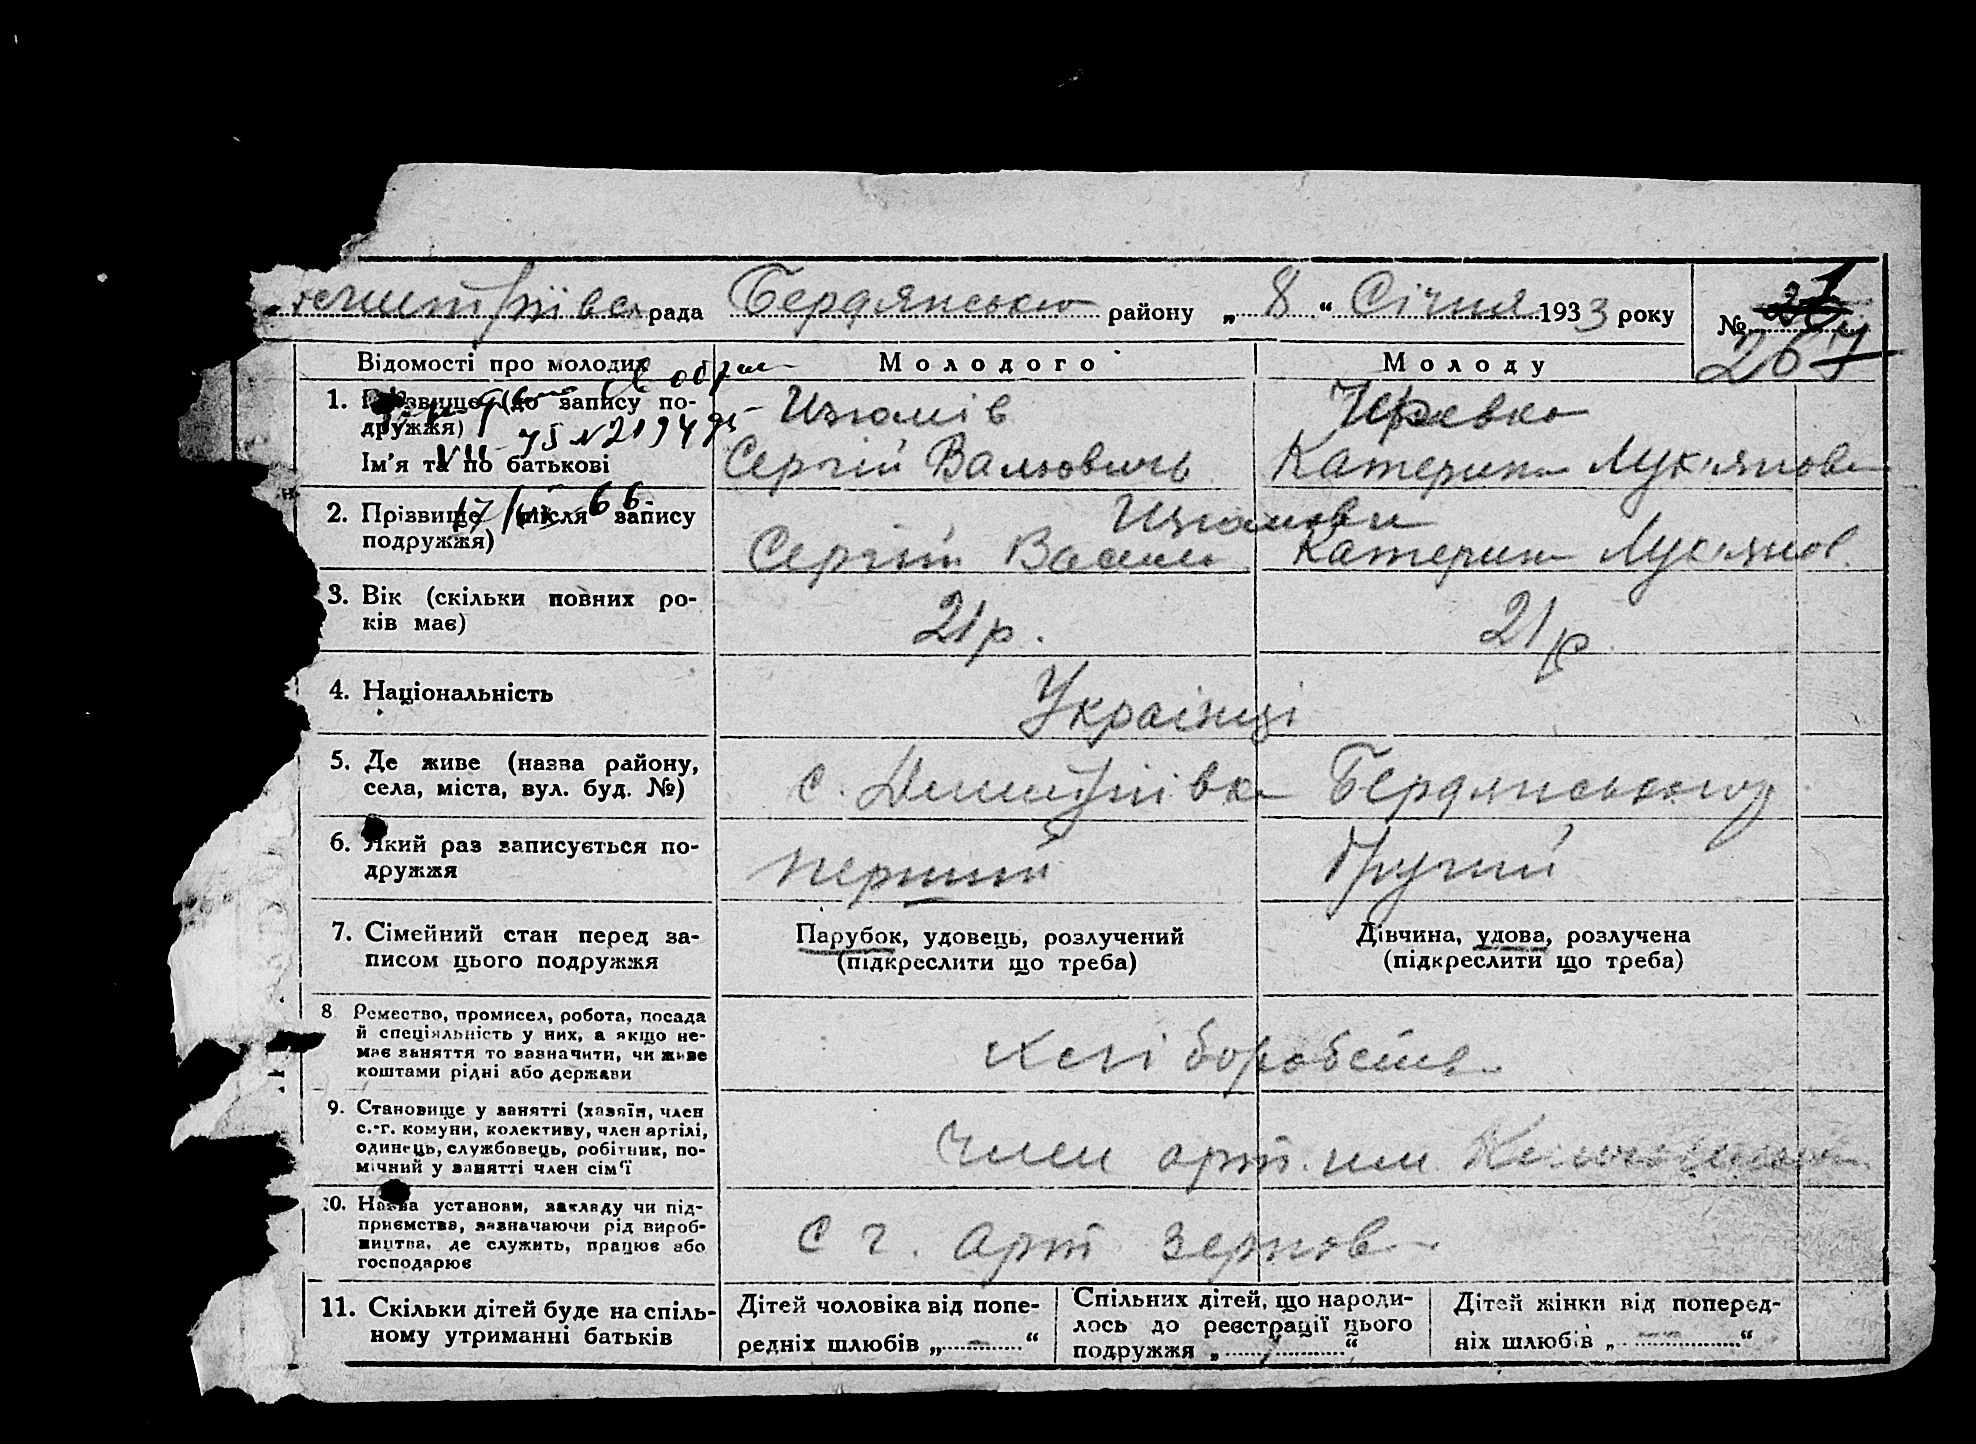 рада Бердянського району „ 8 “ Січня 1933 року № 267
Відомості про молодих
Молодого
Молоду
1. Прізвище (до запису подружжя)
Ізюмів
Ім'я та по батькові
Сергій Катерина Лук'янов
2. Прізвище (після запису
подружжя)
Сергій Катерина Лук'янов.
3. Вік (скільки повних ро-
ків має)
21 р.
21 р.
4. Національність
Українці
5. Де живе (назва району,
села, міста, вул. буд. №)
с. Дмитрівка Бердянського
6. Який раз записується по-
дружжя
перший
другий
7. Сімейний стан перед за-
писом цього подружжя
Парубок, удовець, розлучений
(підкреслити що треба)
Дівчина, удова, розлучена
(підкреслити що треба)
8 Ремество, промисел, робота, посада
й спеціяльність у них, а якщо не-
має заняття то зазначити, чи живе
коштами рідні або держави
хліборобств
9. Становище у занятті (хазяїн, член
с.-г. комуни, колективу, член артілі,
одинець, службовець, робітник, по-
мічний у занятті член сім'ї
член арт. им.
10. Назва установи, закладу чи під-
приємства, зазначаючи рід вироб-
ництва, де служить, працює або
господарює
с г. арт зернов
11. Скільки дітей буде на спіль-
ному утриманні батьків
Дітей чоловіка від попе-
редніх шлюбів „ — “
Спільних дітей, що народи-
лось до реєстрації цього
подружжя „ “
Дітей жінки від поперед-
ніх шлюбів „ — “